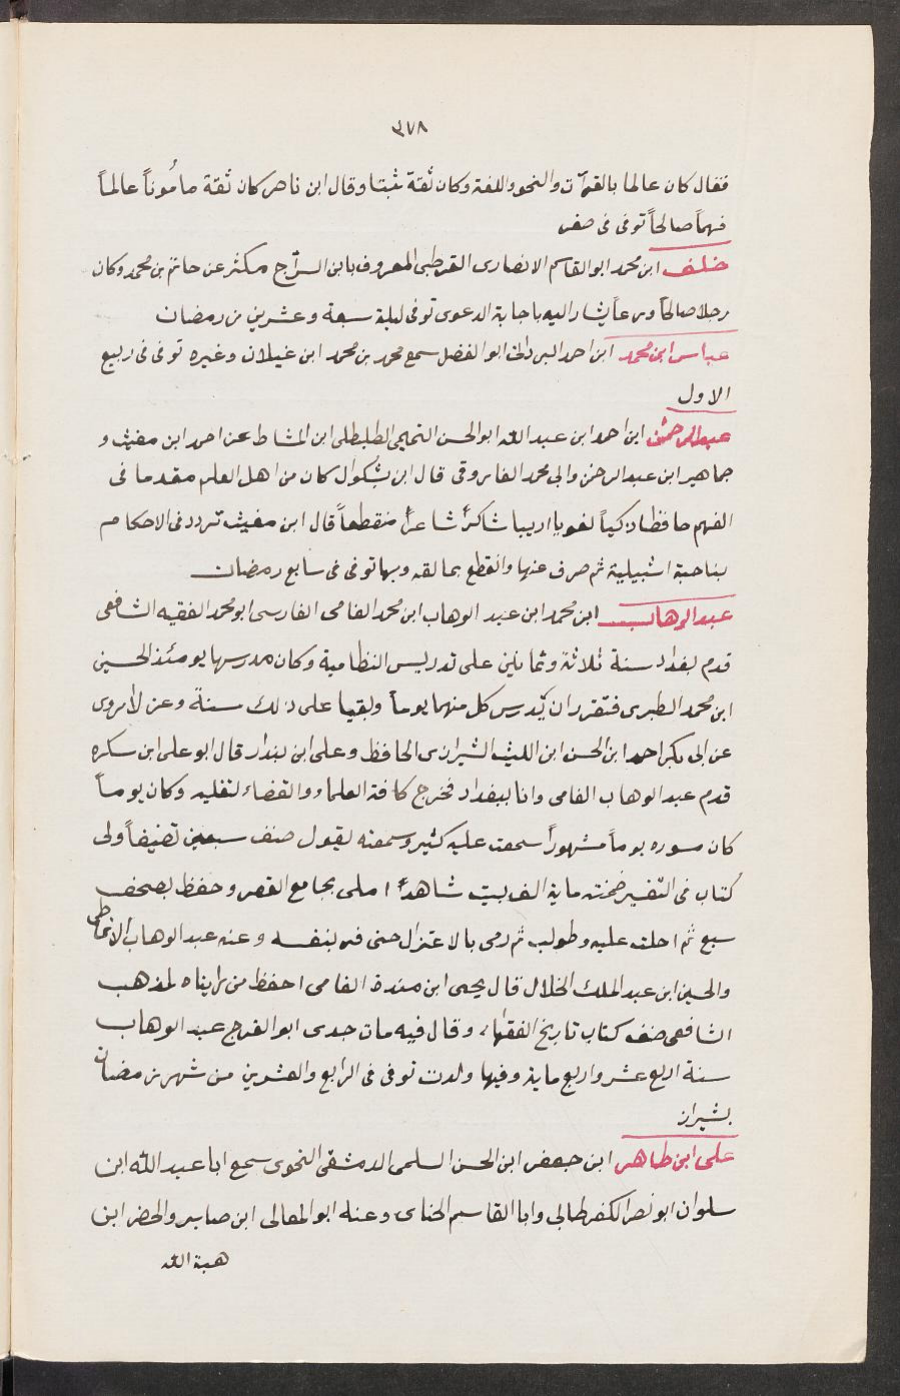 ٣٧٨
فقال كان عالما بالقرآت والنحو واللغة وكان ثقة ثبتا وقال ابن ناصر كان ثقة مامُوناً عالماً
فهماً صالحاً توفى فى صفر
خلف ابن محمد ابو القاسم الانصارى القرطبى المعروف بابن السرّاج مكثر عن حاتم بن محمد وكان
رجلا صالحاً ورعاً يشار اليه باجابة الدعوى توفى ليلة سبعة وعشرين من رمضان
عباس ابن محمد ابن احمد ابو الفضل سمع محمد بن محمد ابن غيلان وغيره توفى فى ربيع
الاول
عبد الرحمٰن ابن احمد ابن عبد الله ابو الحسن التجيبى الطليطلى ابن المشاط عن احمد ابن مغيث و
جماهير ابن عبد الرحمٰن وابى محمد الفاروقى قال ابن بشكوال كان من اهل العلم مقدما فى
الفهم حافظا ذكياً لغويا اديبا شاكراً شاعراً منقطعاً قال ابن مغيث تردد فى الاحكام
بناحية اشبيلية ثم صرف عنها وانقطع بمالقه وبها توفى فى سابع رمضان
عبد الوهاب ابن محمد ابن عبد الوهاب ابن محمد الفامى الفارسى ابو محمد الفقيه الشافعى
قدم بغداد سنة ثلاثة وثمانين على تدريس النظامية وكان مدرسها يومئذ الحسين
ابن محمد الطبرى فتقرر ان يدرس كل منهما يوماً وبقيا على ذلك سنة وعزلا روى
عن ابى بكر احمد ابن الحسن ابن الليث الشيرازى الحافظ وعلى ابن بندار قال ابو على ابن سكره
قدم عبد الوهاب الفامى وانا ببغداد فخرج كافة العلماء والقضاء لتقليه وكان يوماً
كان سوره يوماً مشهوراً سمعت عليه كثير وسمعته يقول صنف سبعين تصنيفاً ولى
كتاب فى التفسير ضمنته ماية الف بيت شاهداً املى بجامع القصر وحفظ بصحف
سبع ثم احلف عليه وطولب ثم رمى بالاعتزال حتى فر بنفسه وعنه عبد الوهاب الانماطى
والحسين ابن عبد الملك الخلال قال يحيى ابن مندة الفامى احفظ من رايناه لمذهب
الشافعى صنف كتاب تاريخ الفقهاء وقال فيه مات جدى ابو الفرج عبد الوهاب
سنة اربع عشر واربع ماية وفيها ولدت توفى فى الرابع والعشرين من شهر رمضان
بشيراز
على ابن طاهر ابن جعفر ابن الحسن السلمى الدمشقى النحوى سمع ابا عبد الله ابن
سلوان ابو نصر الكفرطابى وابا القاسم الحنائى وعنه ابو المعالى ابن صابر والخضر ابن
هبة الله